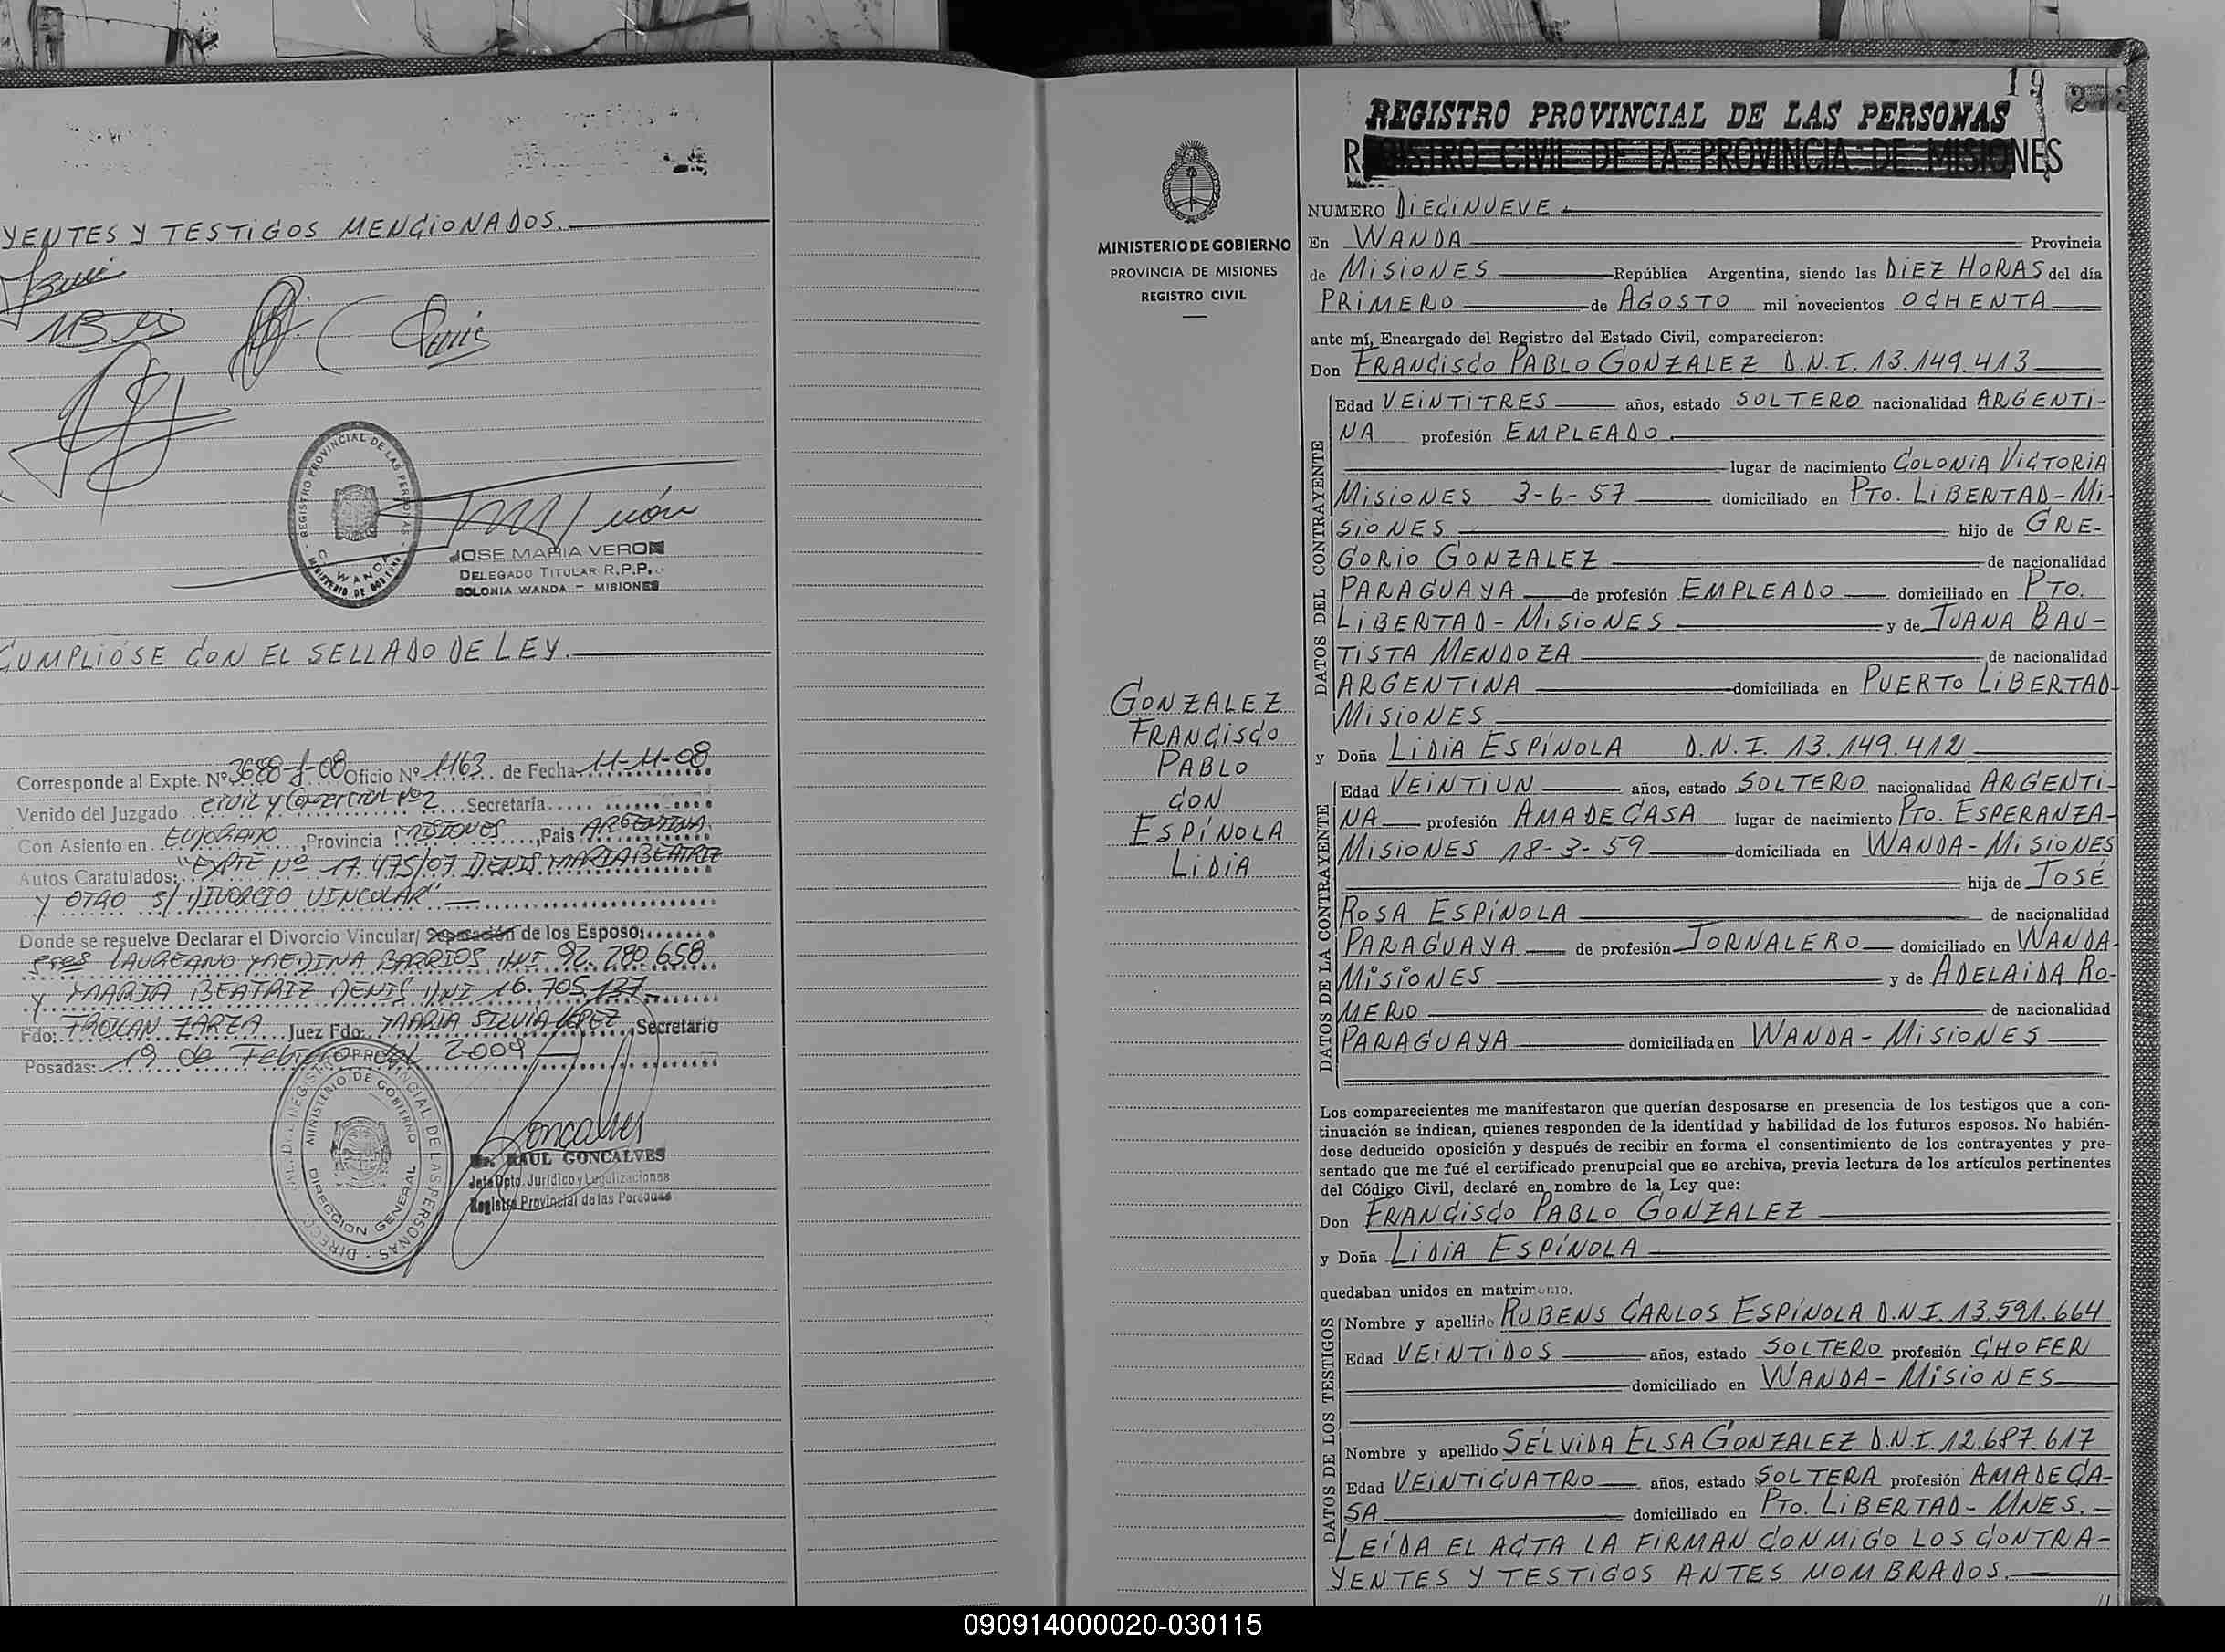 YENTES Y TESTIGOS MENCIONADOS.
REGISTRO PROVINCIAL DE LAS PERSONAS
WANDA
MINISTERIO DE GOBIERNO
JOSE MARIA VERON
DELEGADO TITULAR R.P.P.
COLONIA WANDA - MISIONES
CUMPLIÓSE CON EL SELLADO DE LEY.
Corresponde al Expte. Nº 3688-J-08 Oficio Nº 1163 de Fecha 11-11-08
Venido del Juzgado Civil y Comercial Nº 2 Secretaría
Con Asiento en ELDORADO, Provincia MISIONES, Pais ARGENTINA
Autos Caratulados: "EXPTE Nº 17.475/07 DENIS MARIA BEATRIZ
Y OTRO S/ DIVORCIO VINCULAR"
Donde se resuelve Declarar el Divorcio Vincular/ Separación de los Esposo:
LAUREANO MEDINA BARRIOS DNI 92.280.658
Y MARIA BEATRIZ DENIS DNI 16.705.127
Fdo: FROILAN ZARZA Juez Fdo: MARIA SILVIA LOPEZ, Secretario
Posadas: 19 de Febrero del 2009
MINISTERIO DE GOBIERNO
DIRECCION GENERAL
Dr. RAUL GONCALVES
Jefe Dpto. Jurídico y Legalizaciones
Registro Provincial de las Personas
MINISTERIO DE GOBIERNO
PROVINCIA DE MISIONES
REGISTRO CIVIL
GONZALEZ
FRANCISCO
PABLO
CON
ESPÍNOLA
LIDIA
19
REGISTRO PROVINCIAL DE LAS PERSONAS
REGISTRO CIVIL DE LA PROVINCIA DE MISIONES
NUMERO DIECINUEVE.
En WANDA Provincia
de MISIONES República Argentina, siendo las DIEZ HORAS del día
PRIMERO de AGOSTO mil novecientos OCHENTA
ante mí, Encargado del Registro del Estado Civil, comparecieron:
Don FRANCISCO PABLO GONZALEZ D.N.I. 13.149.413
DATOS DEL CONTRAYENTE
Edad VEINTITRES años, estado SOLTERO nacionalidad ARGENTI-
NA profesión EMPLEADO.
lugar de nacimiento COLONIA VICTORIA
MISIONES 3-6-57 domiciliado en PTO. LIBERTAD-MI-
SIONES hijo de GRE-
GORIO GONZALEZ de nacionalidad
PARAGUAYA de profesión EMPLEADO domiciliado en PTO.
LIBERTAD-MISIONES y de JUANA BAU-
TISTA MENDOZA de nacionalidad
ARGENTINA domiciliada en PUERTO LIBERTAD
MISIONES
y Doña LIDIA ESPÍNOLA D.N.I. 13.149.412
DATOS DE LA CONTRAYENTE
Edad VEINTIUN años, estado SOLTERO nacionalidad ARGENTI-
NA profesión AMA DE CASA lugar de nacimiento PTO. ESPERANZA-
MISIONES 18-3-59 domiciliada en WANDA-MISIONES
hija de JOSÉ
ROSA ESPÍNOLA de nacionalidad
PARAGUAYA de profesión JORNALERO domiciliado en WANDA-
MISIONES y de ADELAIDA RO-
MERO de nacionalidad
PARAGUAYA domiciliada en WANDA-MISIONES
Los comparecientes me manifestaron que querían desposarse en presencia de los testigos que a con-
tinuación se indican, quienes responden de la identidad y habilidad de los futuros esposos. No habién-
dose deducido oposición y después de recibir en forma el consentimiento de los contrayentes y pre-
sentado que me fué el certificado prenupcial que se archiva, previa lectura de los artículos pertinentes
del Código Civil, declaré en nombre de la Ley que:
Don FRANCISCO PABLO GONZALEZ
y Doña LIDIA ESPÍNOLA
quedaban unidos en matrimonio.
DATOS DE LOS TESTIGOS
Nombre y apellido RUBENS CARLOS ESPÍNOLA D.N.I. 13.591.664
Edad VEINTIDOS años, estado SOLTERO profesión CHOFER
domiciliado en WANDA-MISIONES
Nombre y apellido SELVIDA ELSA GONZALEZ D.N.I. 12.687.617
Edad VEINTICUATRO años, estado SOLTERA profesión AMA DE CA-
SA domiciliado en PTO. LIBERTAD-MNES.-
LEÍDA EL ACTA LA FIRMAN CONMIGO LOS CONTRA-
YENTES Y TESTIGOS ANTES NOMBRADOS.
090914000020-030115